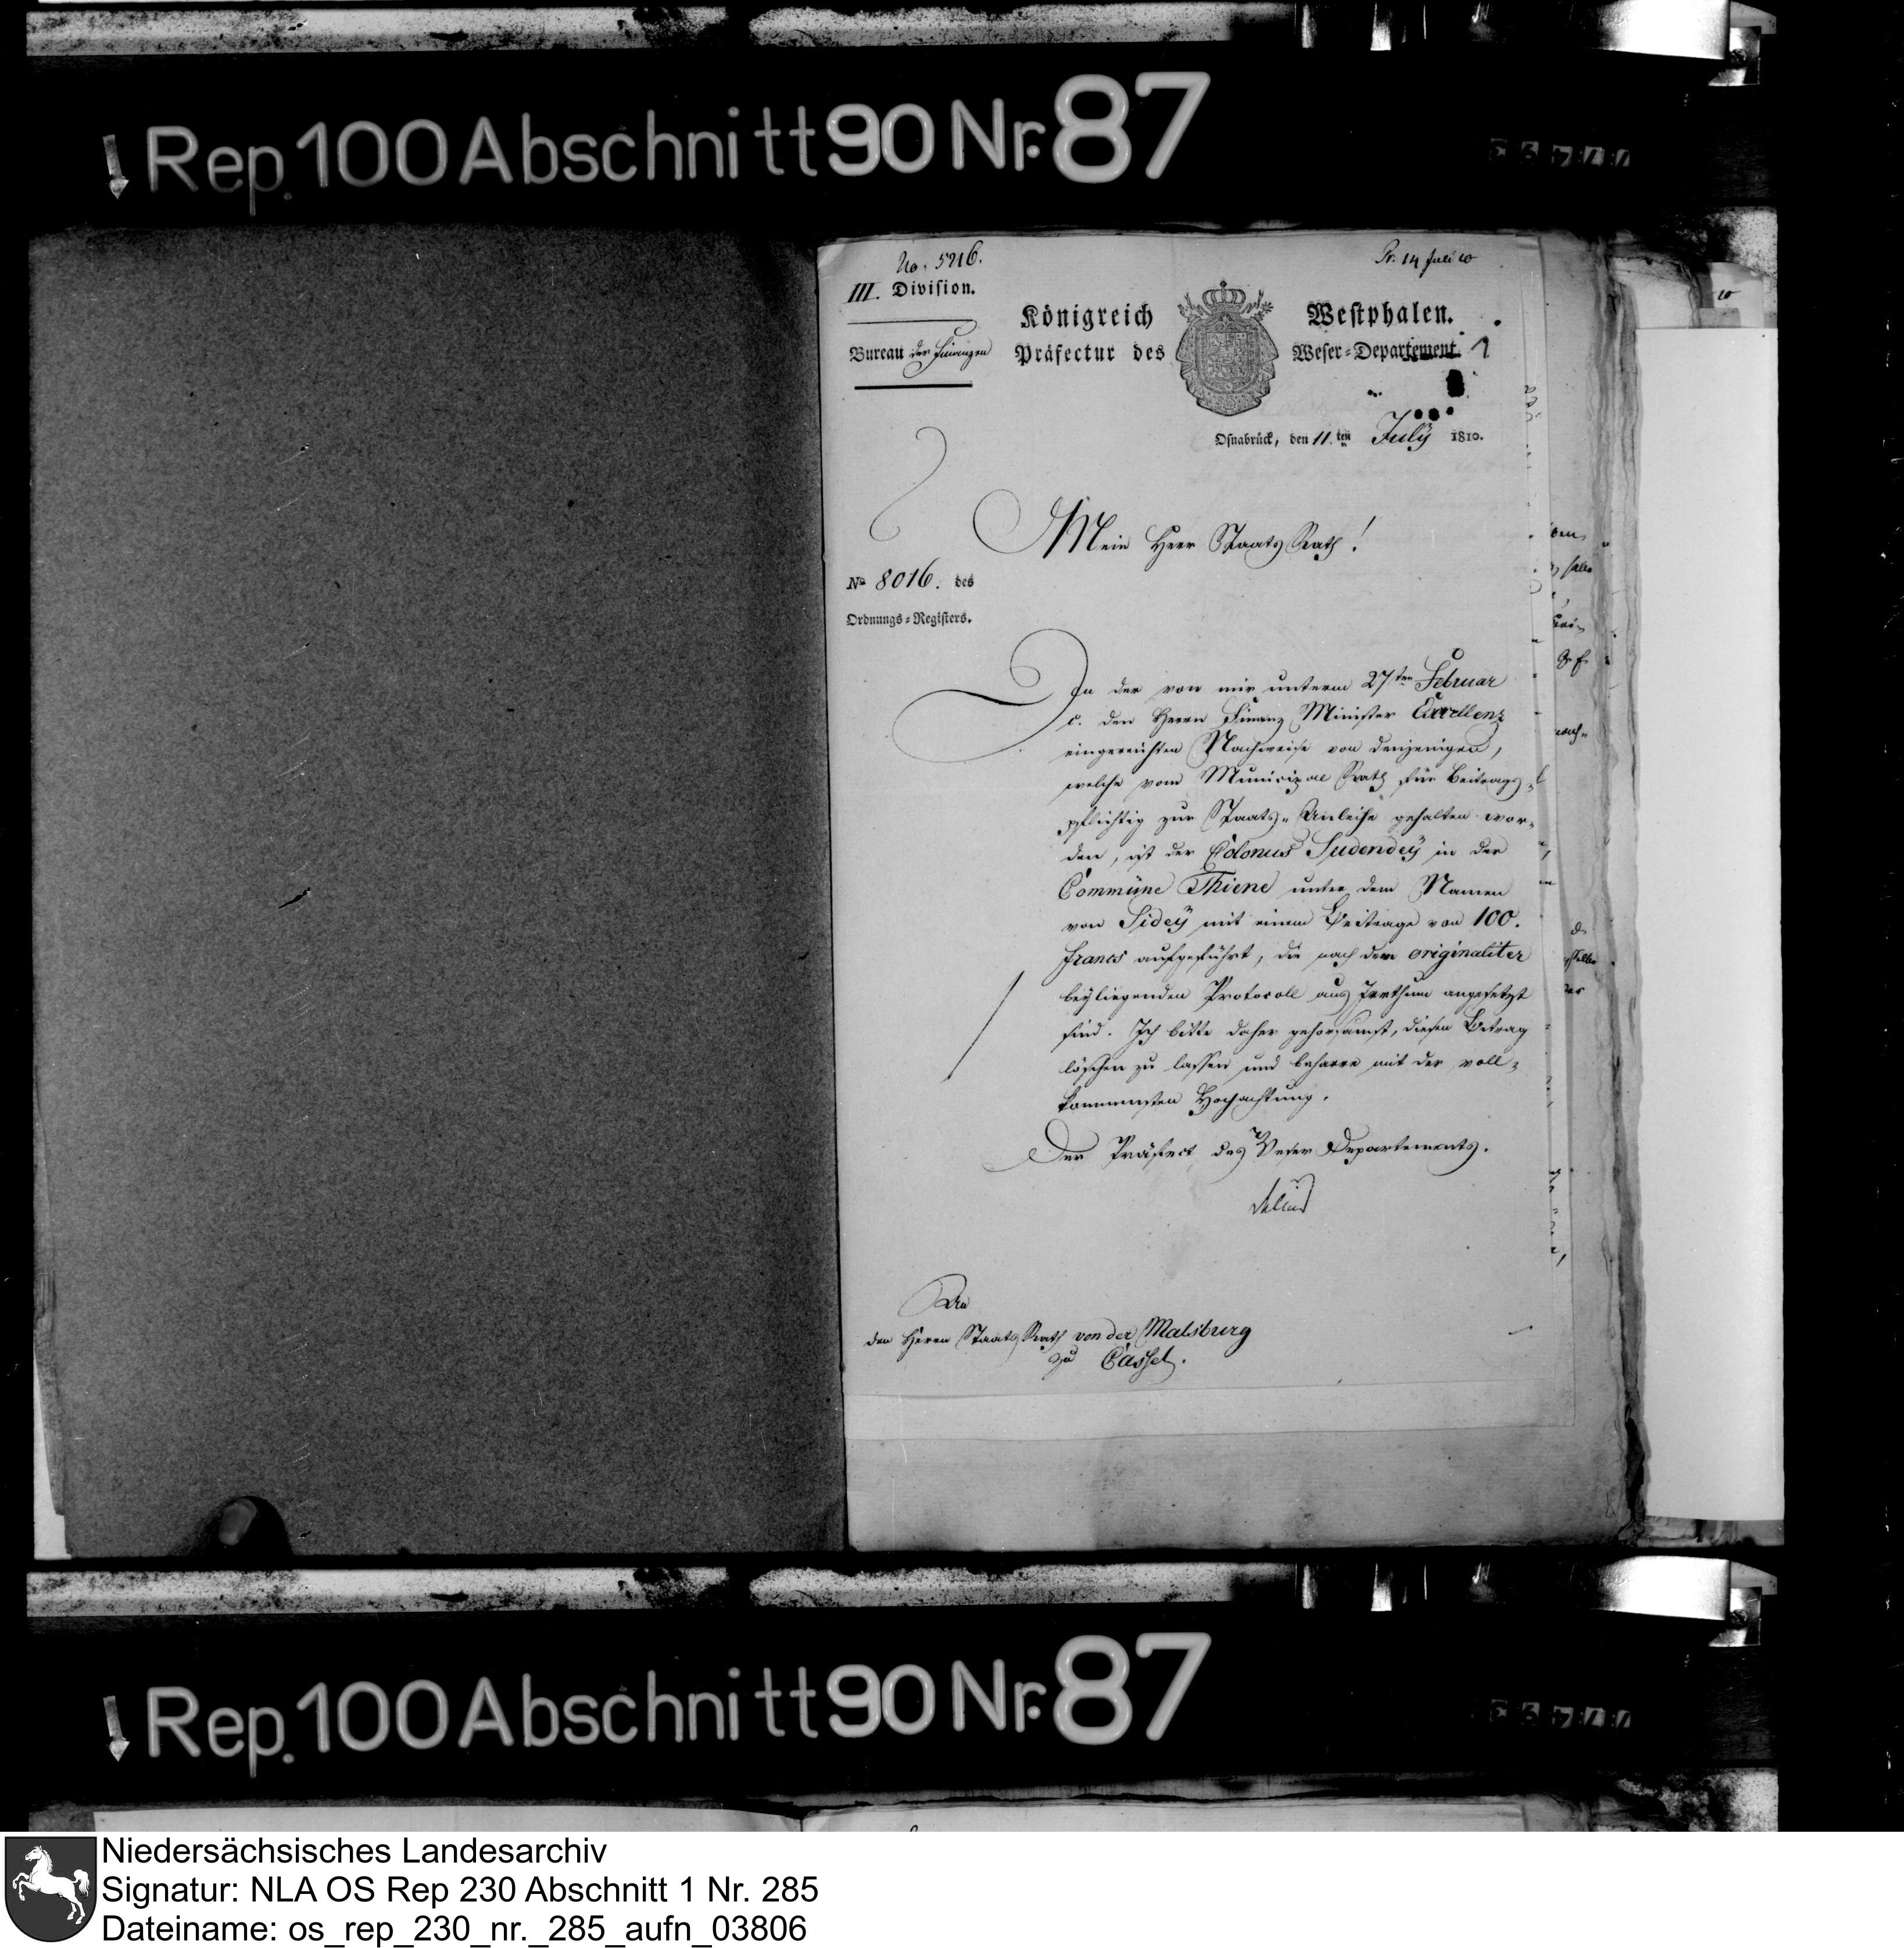 Rep. 100 Abschnitt 90 Nr. 87
No. 5216.
Pr. 14 Juli 10
III. Division.
Königreich Westphalen.
Bureau der Finanzen
Präfectur des Weser-Departement.
1
Osnabrück, den 11.ten July 1810.
Mein Herr Staats Rath!
No 8016. des
Ordnungs-Registers.
In der von mir unterm 27ten Februar
c. den Herrn Finanz Minister Excellenz
eingereichten Nachweise von denjenigen,
welche vom Municipal Rath für Beitrags-
pflichtig zur Staats-Anleihe gehalten wor-
den, ist der Colonus Sudendey in der
Commüne Thiene unter dem Namen
von Sidey mit einem Beitrage von 100.
francs aufgeführt, die nach dem originaliter
beyliegenden Protocoll aus Irrthum angesetzt
sind. Ich bitte daher gehorsamst, diesen Betrag
löschen zu lassen und beharre mit der voll-
kommensten Hochachtung.
Der Präfect des Weser Departements.
Delius
An
den Herrn Staats Rath von der Malsburg
zu Cassel.
Rep. 100 Abschnitt 90 Nr. 87
Niedersächsisches Landesarchiv
Signatur: NLA OS Rep 230 Abschnitt 1 Nr. 285
Dateiname: os_rep_230_nr._285_aufn_03806